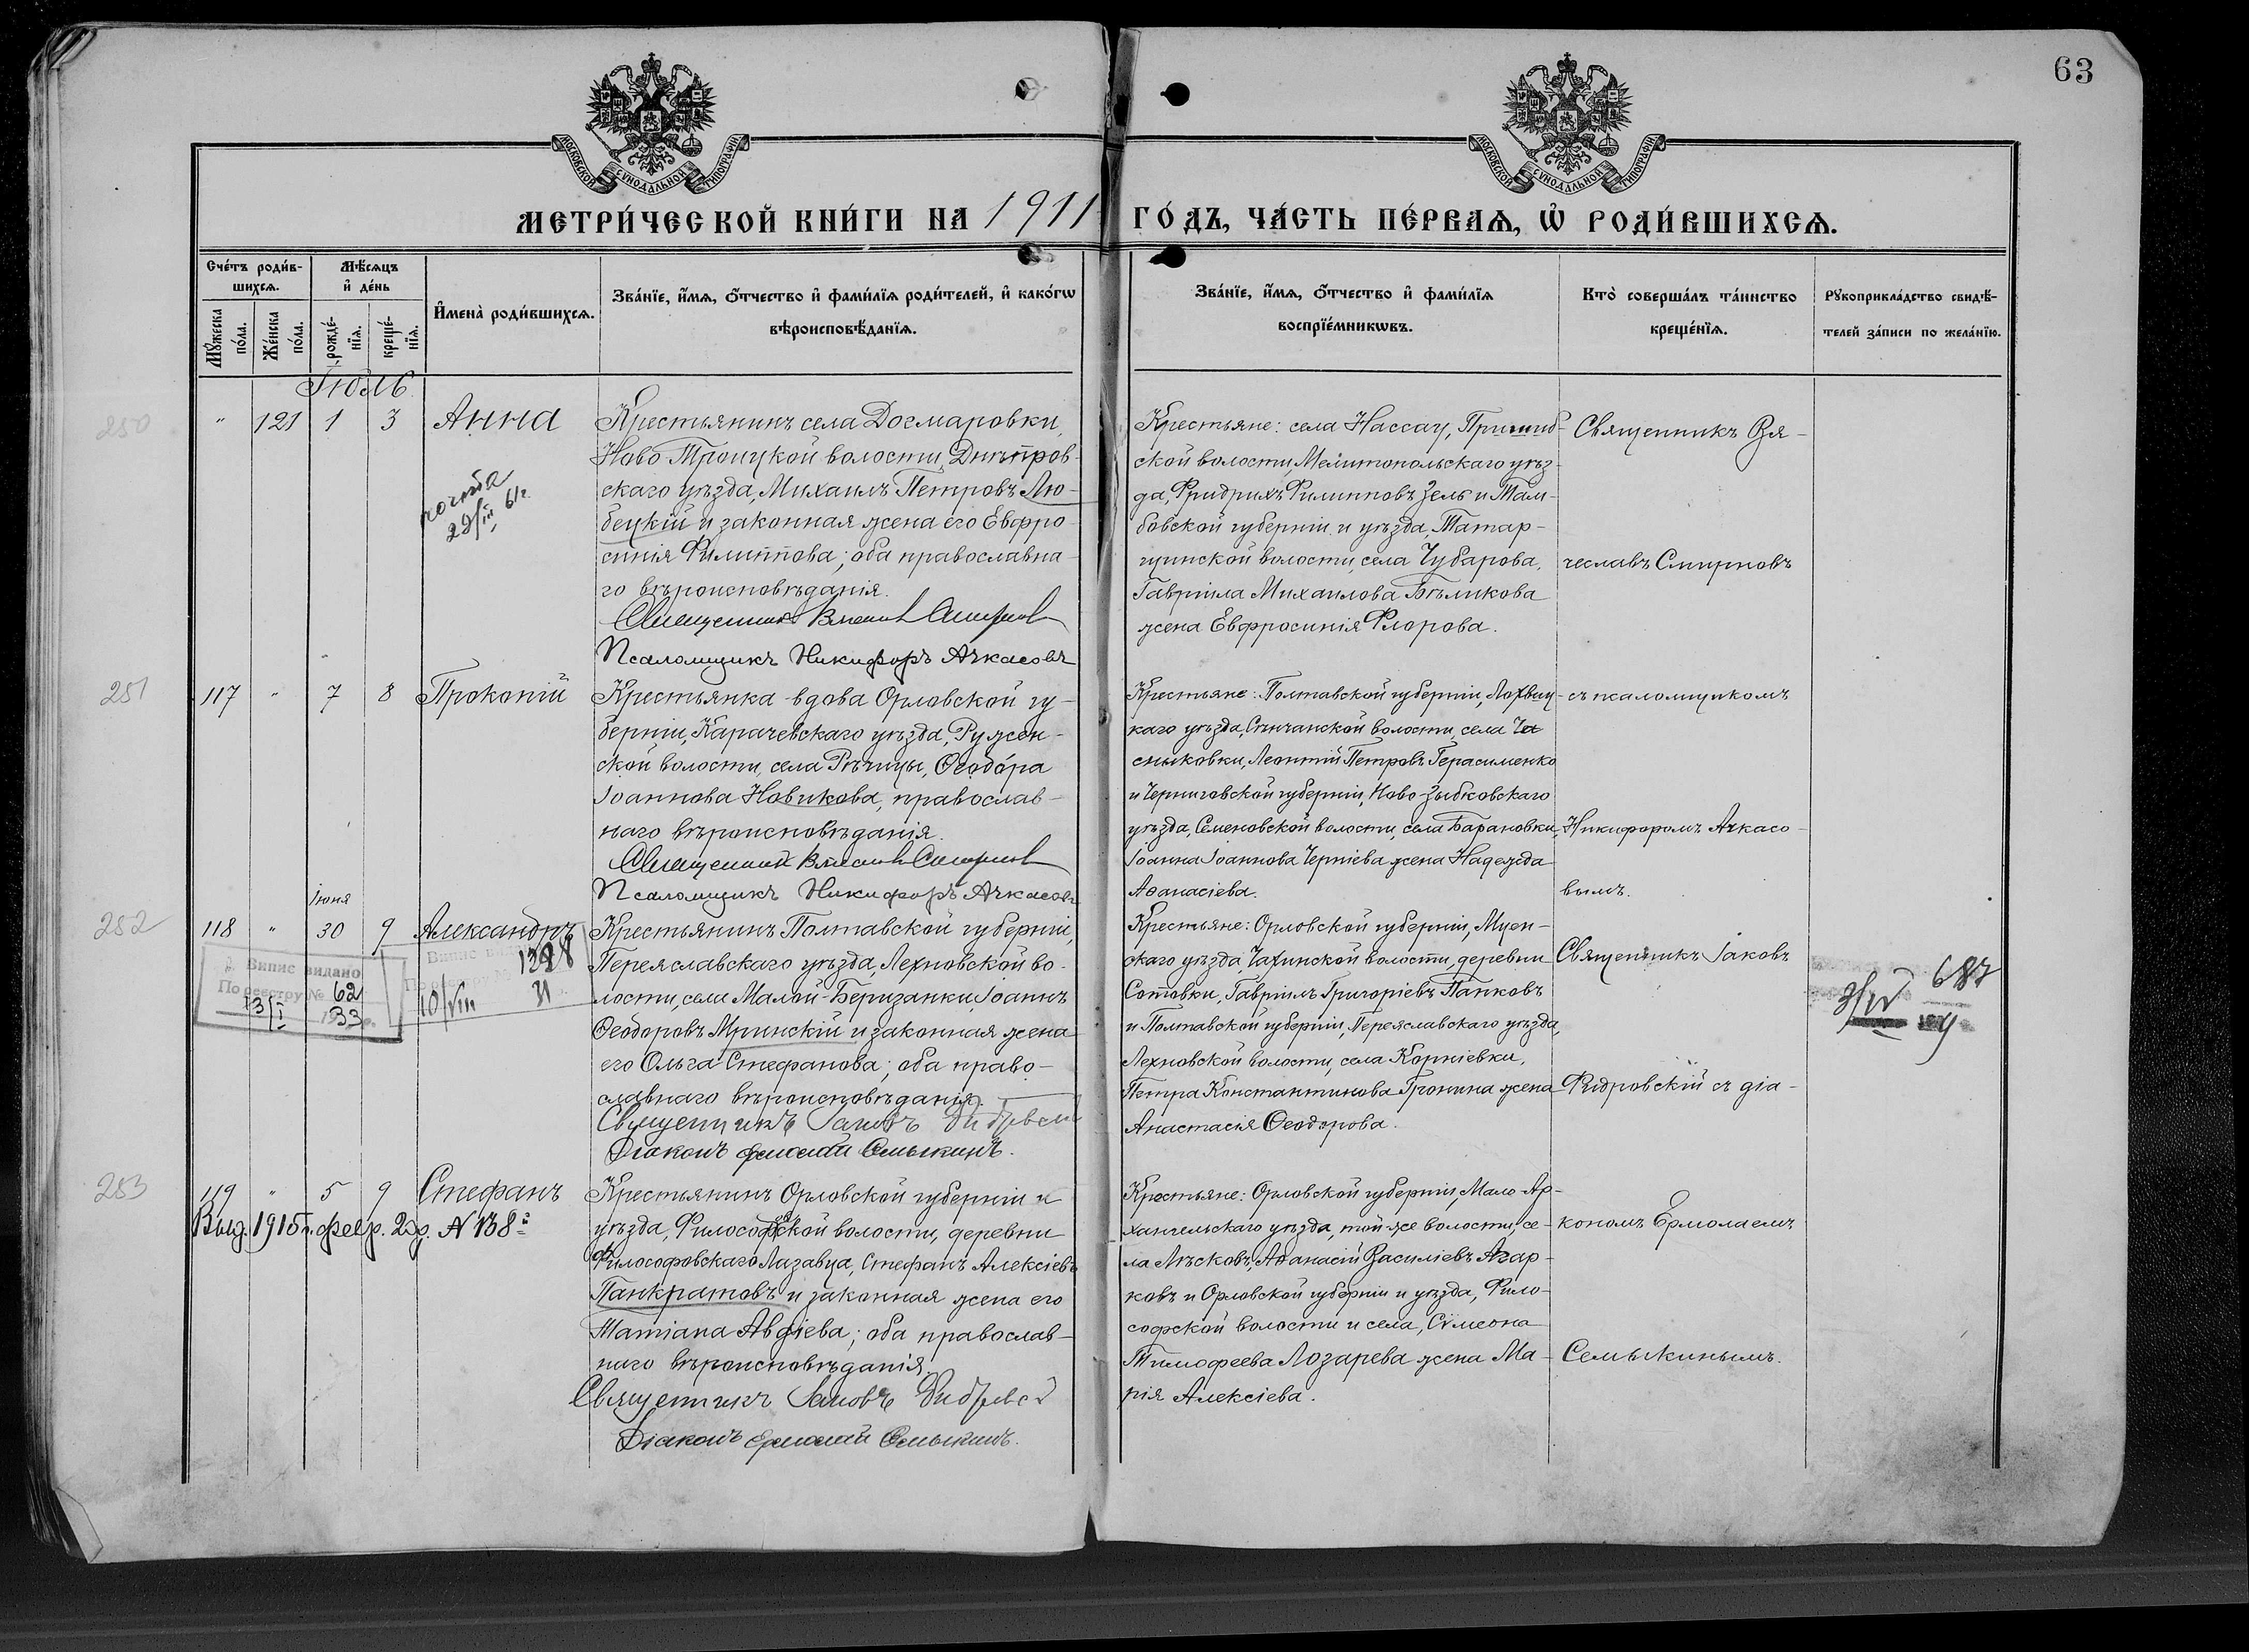 63
МОСКОВСКОЙ СѴНОДАЛЬНОЙ ТИПОГРАФІИ
МОСКОВСКОЙ СѴНОДАЛЬНОЙ ТИПОГРАФІИ
МЕТРИ́ЧЕСКОЙ КНИ́ГИ НА 1911 ГО́ДЪ, ЧА́СТЬ ПЕ́РВАѦ, Ѽ РОДИ́ВШИХСѦ.
Сче́тъ роди́в-
шихсѧ.
Мѣ́сѧцъ
и҆ де́нь
Мꙋ́жеска
по́ла.
Же́нска
по́ла.
рожде́-
нїѧ.
креще́-
нїѧ.
И҆мена̀ роди́вшихсѧ.
Зва́нїе, и҆́мѧ, ѻ҆́тчество и҆ фами́лїѧ роди́телей, и҆ како́гѡ
вѣроисповѣ́данїѧ.
Зва́нїе, и҆́мѧ, ѻ҆́тчество и҆ фами́лїѧ
воспрїе́мникѡвъ.
Кто̀ соверша́лъ та́инство
креще́нїѧ.
Рꙋкоприкла́дство свидѣ́-
телей за́писи по жела́нїю.
Іюль
250
" 121 1 3 Анна
Крестьянинъ села Догмаровки,
Ново Троицкой волости, Днѣпров-
скаго уѣзда, Михаилъ Петровъ Лю-
бецкій и законная жена его Евфро-
синія Филиппова; оба православна-
го вѣроисповѣданія.
Священникъ Вячеславъ Смирновъ
Псаломщикъ Никифоръ Ачкасовъ
почта
29/III 61г.
Крестьяне: села Нассау, Пришиб-
ской волости, Мелитопольскаго уѣз-
да, Фридрихъ Филипповъ Зель и Там-
бовской губерніи и уѣзда, Татар-
щинской волости, села Чубарова,
Гавріила Михаилова Бѣликова
жена Евфросинія Флорова.
Священникъ Вя-
чеславъ Смирновъ
251
117 " 7 8 Прокопій
Крестьянка вдова Орловской гу-
берніи, Карачевскаго уѣзда, Ружен-
ской волости, села Рѣчицы, Ѳеодора
Іоаннова Новикова, православ-
наго вѣроисповѣданія.
Священникъ Вячеславъ Смирновъ
Псаломщикъ Никифоръ Ачкасовъ
Крестьяне: Полтавской губерніи, Лохвиц-
каго уѣзда, Сѣнчанской волости, села Ча
сныковки, Леонтій Петровъ Герасименко
и Черниговской губерніи, Ново-Зыбковскаго
уѣзда, Семеновской волости, села Барановки,
Іоанна Іоаннова Чернiева жена Надежда
Аѳанасіева.
съ псаломщикомъ
Никифоромъ Ачкасо-
вымъ.
252
Іюня
118 " 30 9 Александръ
Крестьянинъ Полтавской губерніи,
Переяславскаго уѣзда, Лехновской во-
лости, села Малой-Беризанки, Іоаннъ
Ѳеодоровъ Мринскій и законная жена
его Ольга Стефанова; оба право-
славнаго вѣроисповѣданія.
Священникъ Іаковъ Фидровскій
Діаконъ Ермолай Семыкинъ.
Випис видано
По реєстру № 62
13/I 1933 р.
10/VIII 31
Крестьяне: Орловской губерніи, Мцен-
скаго уѣзда, Чахинской волости, деревни
Сотовки, Гавріилъ Григоріевъ Папковъ
и Полтавской губерніи, Переяславскаго уѣзда,
Лехновской волости, села Корніевки,
Петра Константинова Гронина жена
Анастасія Ѳеодорова.
Священникъ Іаковъ
Фидровскій съ діа-
687
3/IV
253
119 " 5 9 Стефанъ
Выд. 1915 г. февр. 2 д. № 138
Крестьянинъ Орловской губерніи и
уѣзда, Философской волости, деревни
Философовскаго Лазавца, Стефанъ Алексіевъ
Панкратовъ и законная жена его
Татіана Авдіева; оба православ-
наго вѣроисповѣданія.
Священникъ Іаковъ Фидровскій
Діаконъ Ермолай Семыкинъ.
Крестьяне: Орловской губерніи, Мало-Ар-
хангельскаго уѣзда, той-же волости, се-
ла Лѣсковъ, Аѳанасій Василіевъ Агар-
ковъ и Орловской губерніи и уѣзда, Фило-
софской волости и села, Сѵмеона
Тимофеева Лозарева жена Ма-
рія Алексіева.
кономъ Ермолаемъ
Семыкинымъ.